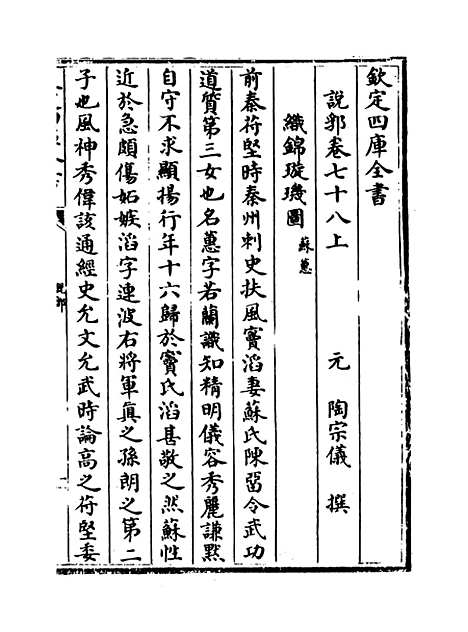 欽定四庫全書
說郛卷七十八上 元 陶宗儀 撰
織錦璇璣圖 蘇蕙
前秦苻堅時秦州刺史扶風竇滔妻蘇氏陳留令武功
道質第三女也名蕙字若蘭識知精明儀容秀麗謙黙
自守不求顯揚行年十六歸於竇氏滔甚敬之然蘇性
近於急頗傷妬嫉滔字連波右將軍眞之孫朗之第二
子也風神秀偉該通經史允文允武時論高之苻堅委
說郛